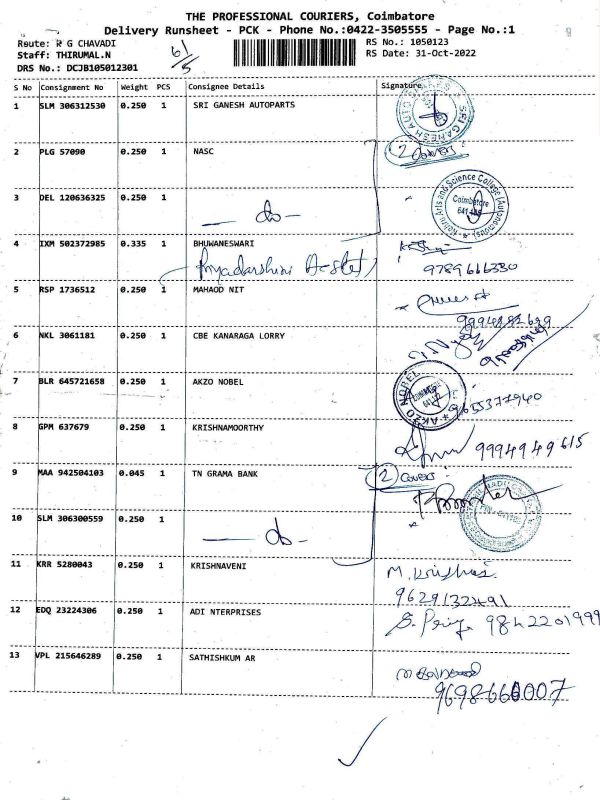 THE PROFESSIONAL COURIERS, Coimbatore
Delivery Runsheet - PCK - Phone No.:0422-3505555 - Page No.:1
Route: R G CHAVADI
Staff: THIRUMAL.N
DRS No.: DCJB105012301
6/5
RS No.: 1050123
RS Date: 31-Oct-2022
S No Consignment No Weight PCS Consignee Details Signature
1 SLM 306312530 0.250 1 SRI GANESH AUTOPARTS
SRI GANESH AUTO
2 PLG 57090 0.250 1 NASC
2 Covers
3 DEL 120636325 0.250 1 - do -
Nehru Arts and Science College (Autonomous)
Coimbatore
4 IXM 502372985 0.335 1 BHUWANESWARI
Priyadarshini
9789616330
5 RSP 1736512 0.250 1 MAHAOD NIT
6 NKL 3061181 0.250 1 CBE KANARAGA LORRY
7 BLR 645721658 0.250 1 AKZO NOBEL
AKZO NOBEL
8 GPM 637679 0.250 1 KRISHNAMOORTHY
9994949615
9 MAA 942504103 0.045 1 TN GRAMA BANK
2 Covers
10 SLM 306300559 0.250 1 - do -
11 KRR 5280043 0.250 1 KRISHNAVENI
9629132491
12 EDQ 23224306 0.250 1 ADI NTERPRISES
S. Priya 9842201999
13 VPL 215646289 0.250 1 SATHISHKUM AR
9698660007